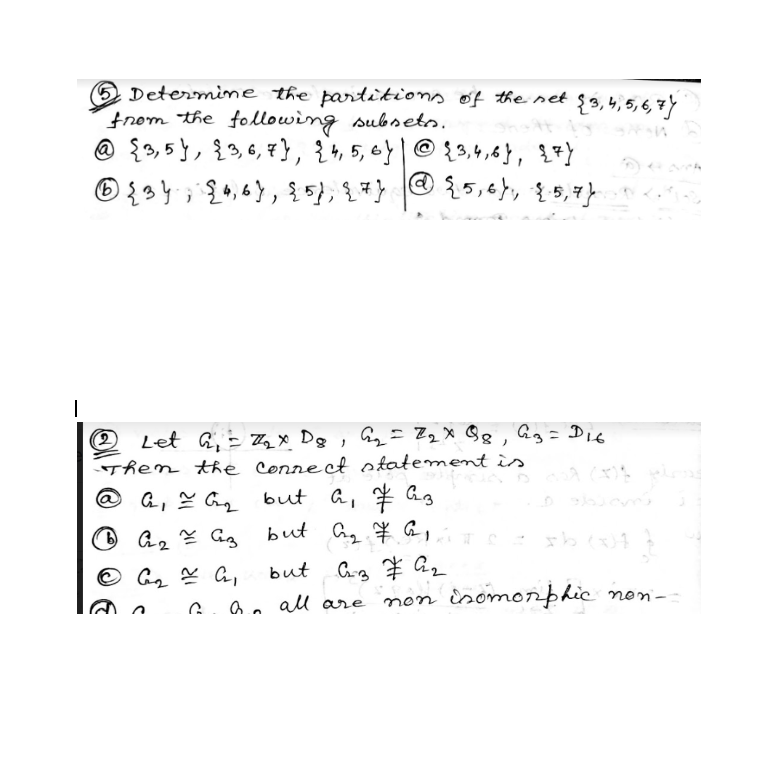 ⑤ Determine the partitions of the set {3,4,5,6,7}
from the following subsets.
ⓐ {3,5}, {3,6,7}, {4,5,6} | ⓒ {3,4,6}, {7}
ⓑ {3}, {4,6}, {5}, {7} | ⓓ {5,6}, {5,7}
② Let G₁ = ℤ₂ × D₈, G₂ = ℤ₂ × Q₈, G₃ = D₁₆
Then the correct statement is
ⓐ G₁ ≅ G₂ but G₁ ≇ G₃
ⓑ G₂ ≅ G₃ but G₂ ≇ G₁
ⓒ G₂ ≅ G₁ but G₃ ≇ G₂
ⓓ all are non isomorphic non-